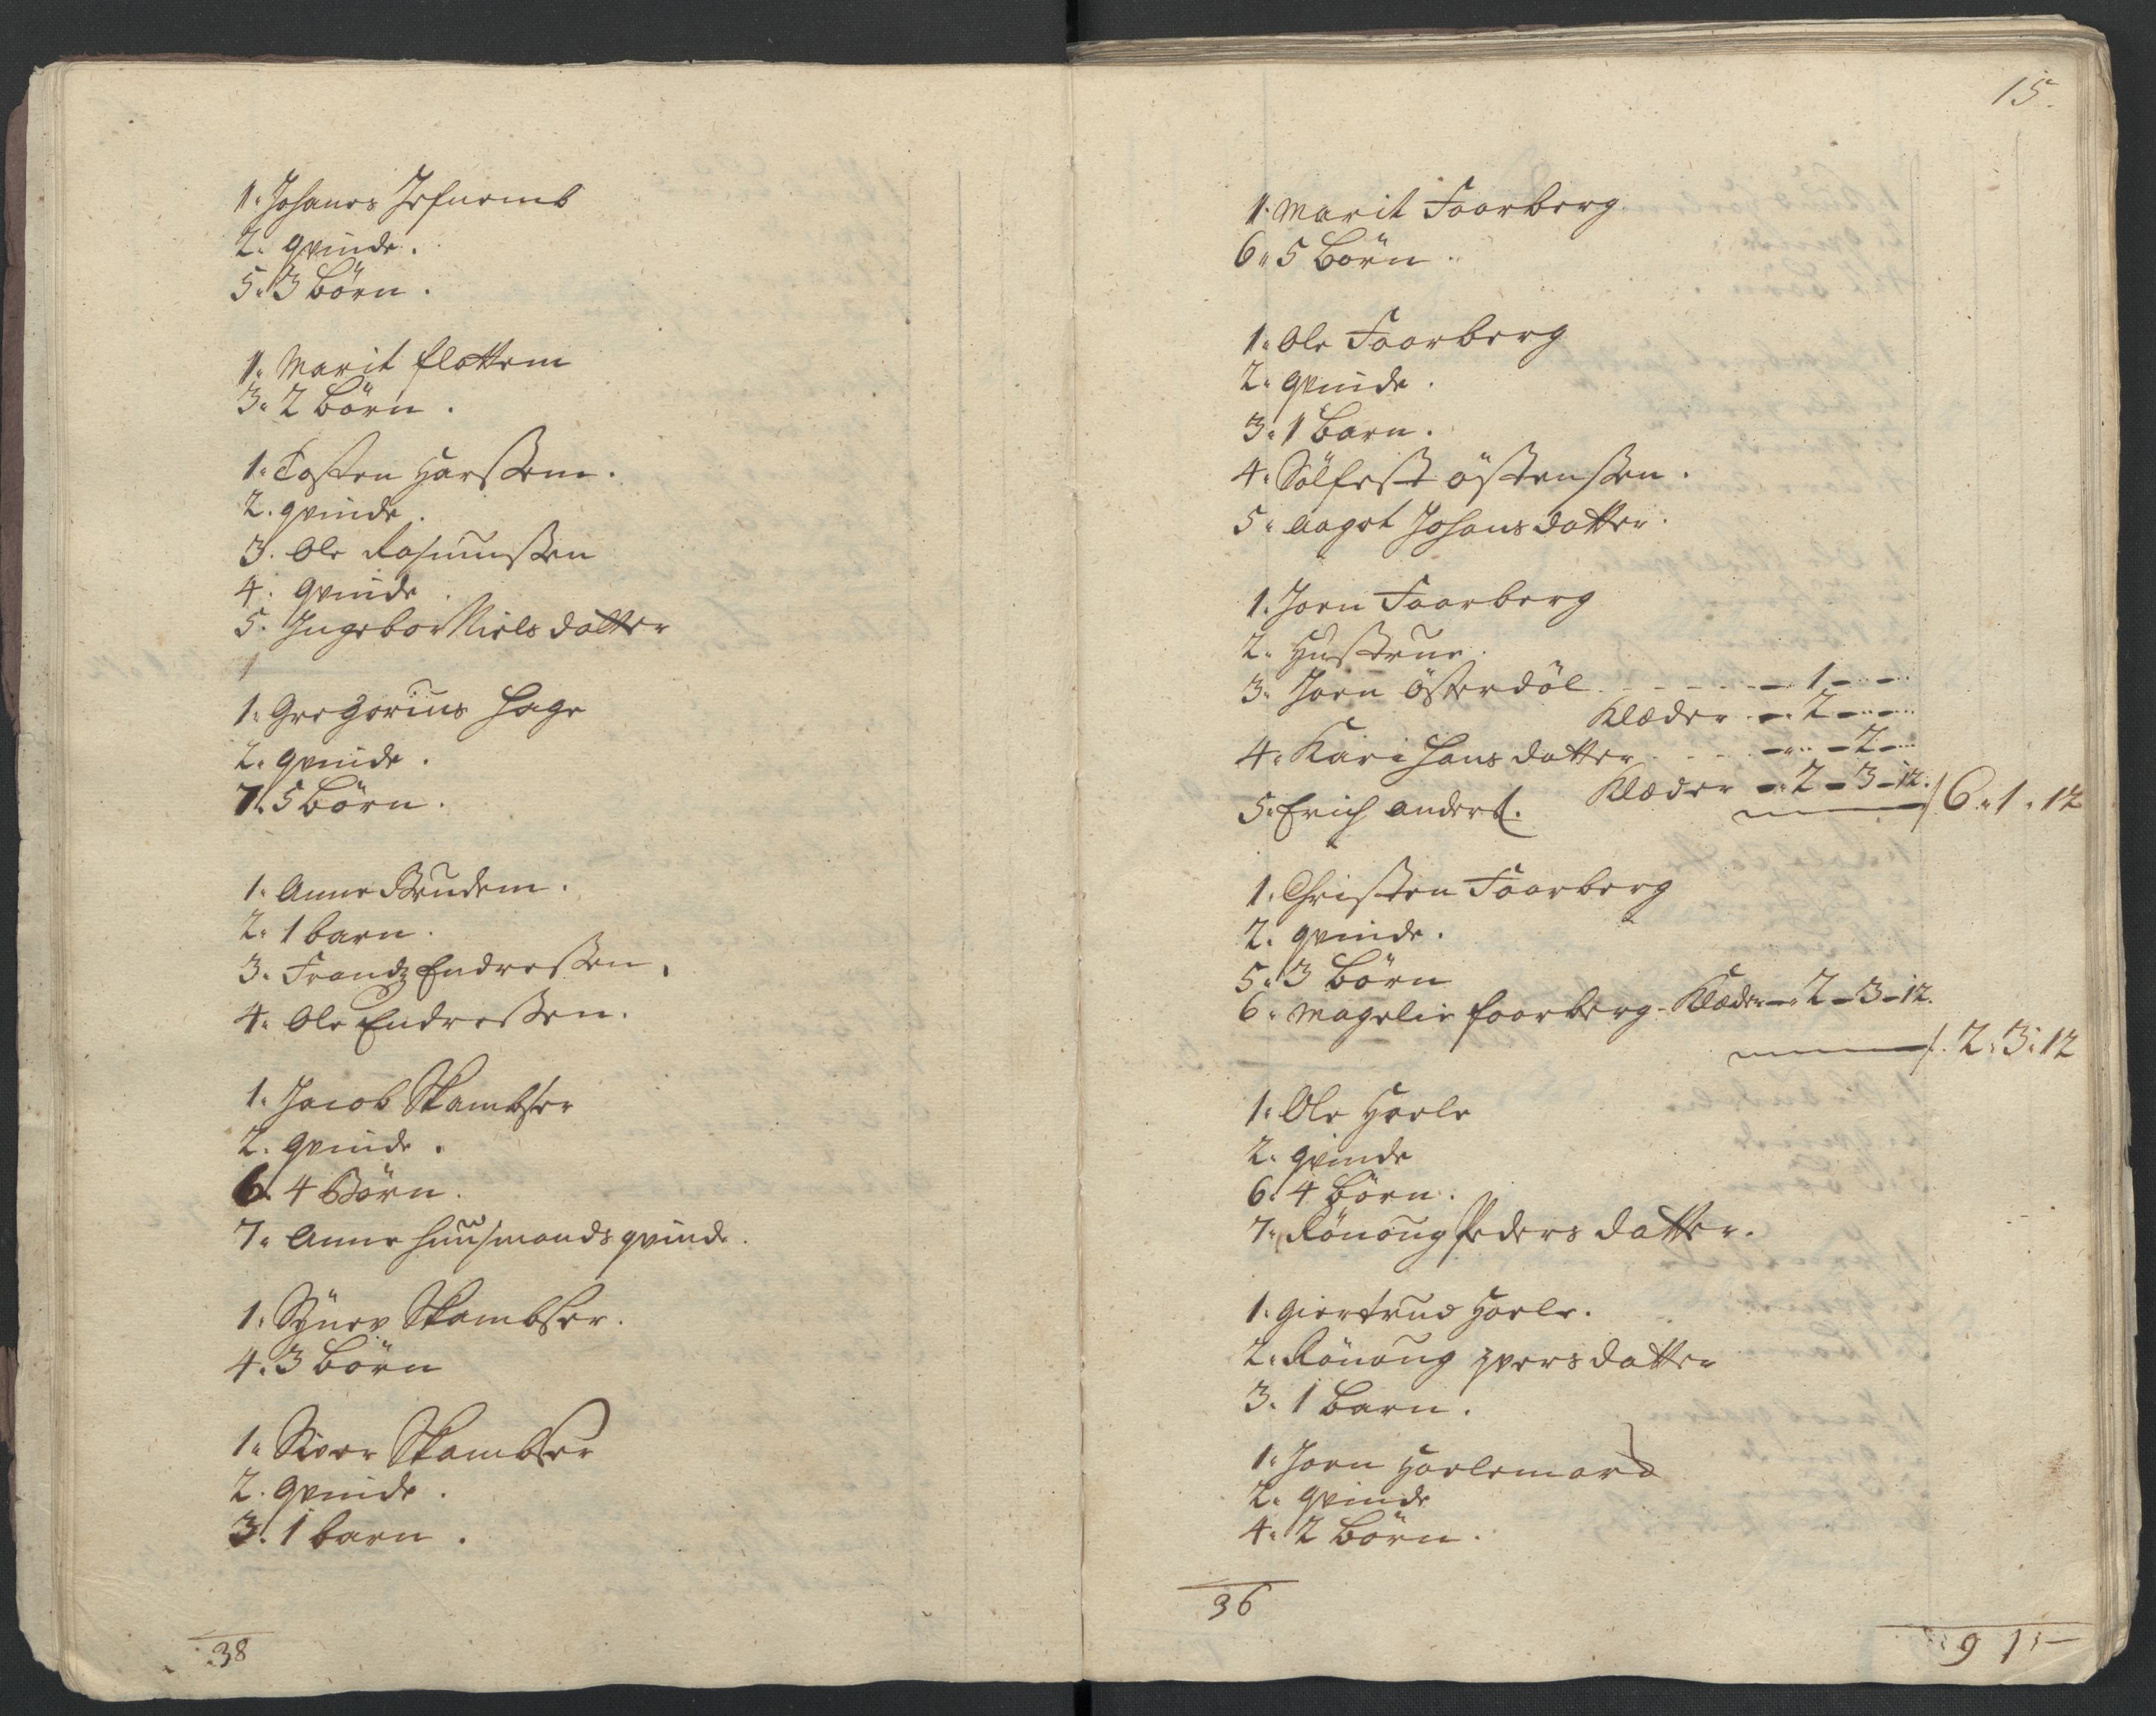 1. Johanes Jefnemb
2. qvinde.
5. 3 börn.
1. Marit flottem
3. 2 börn.
1. Tosten Harssem.
2. qvinde.
3. Ole Rasmussen
4. qvinde.
5. Ingebor Nielsdatter
1. Gregorius Hage
2. qvinde.
7. 5 börn.
1. Anne Brudem.
2. 1 barn.
3. Frandz Endressen.
4. Ole Endressen.
1. Jacob Skambser
2. qvinde.
6. 4 Börn.
7. Anne huusmands qvinde.
1. Synev Skambser.
4. 3 börn
1. Siver Skambser
2. qvinde.
3. 1 barn.
38
15.
1. Marit Faarberg.
6. 5 börn.
1. Ole Faarberg
2. qvinde.
3. 1 barn.
4. Sölfest östensen.
5. Aagot Johansdatter.
1. Joen Faarberg
2. Hustrue.
3. Joen Österdöl - - - - 1 - -
Klæder - 2 - -
4. Kari Hansdatter - - - 2 -
Klæder - 2 - 3 - 12.
5. Erich anders. 6 . 1 . 12
1. Christen Faarberg
2. qvinde.
5. 3 börn
6. Magelie faarberg - Klæder - 2 - 3 - 12.
2. 3. 12
1. Ole Haele
2. qvinde
6. 4 börn.
7. Rönoug Peders datter.
1. giertrud Haele.
2. Rönoug Iversdatter
3. 1 barn.
1. Joen Haelemard
2. qvinde
4. 2 börn.
36
9 1 -